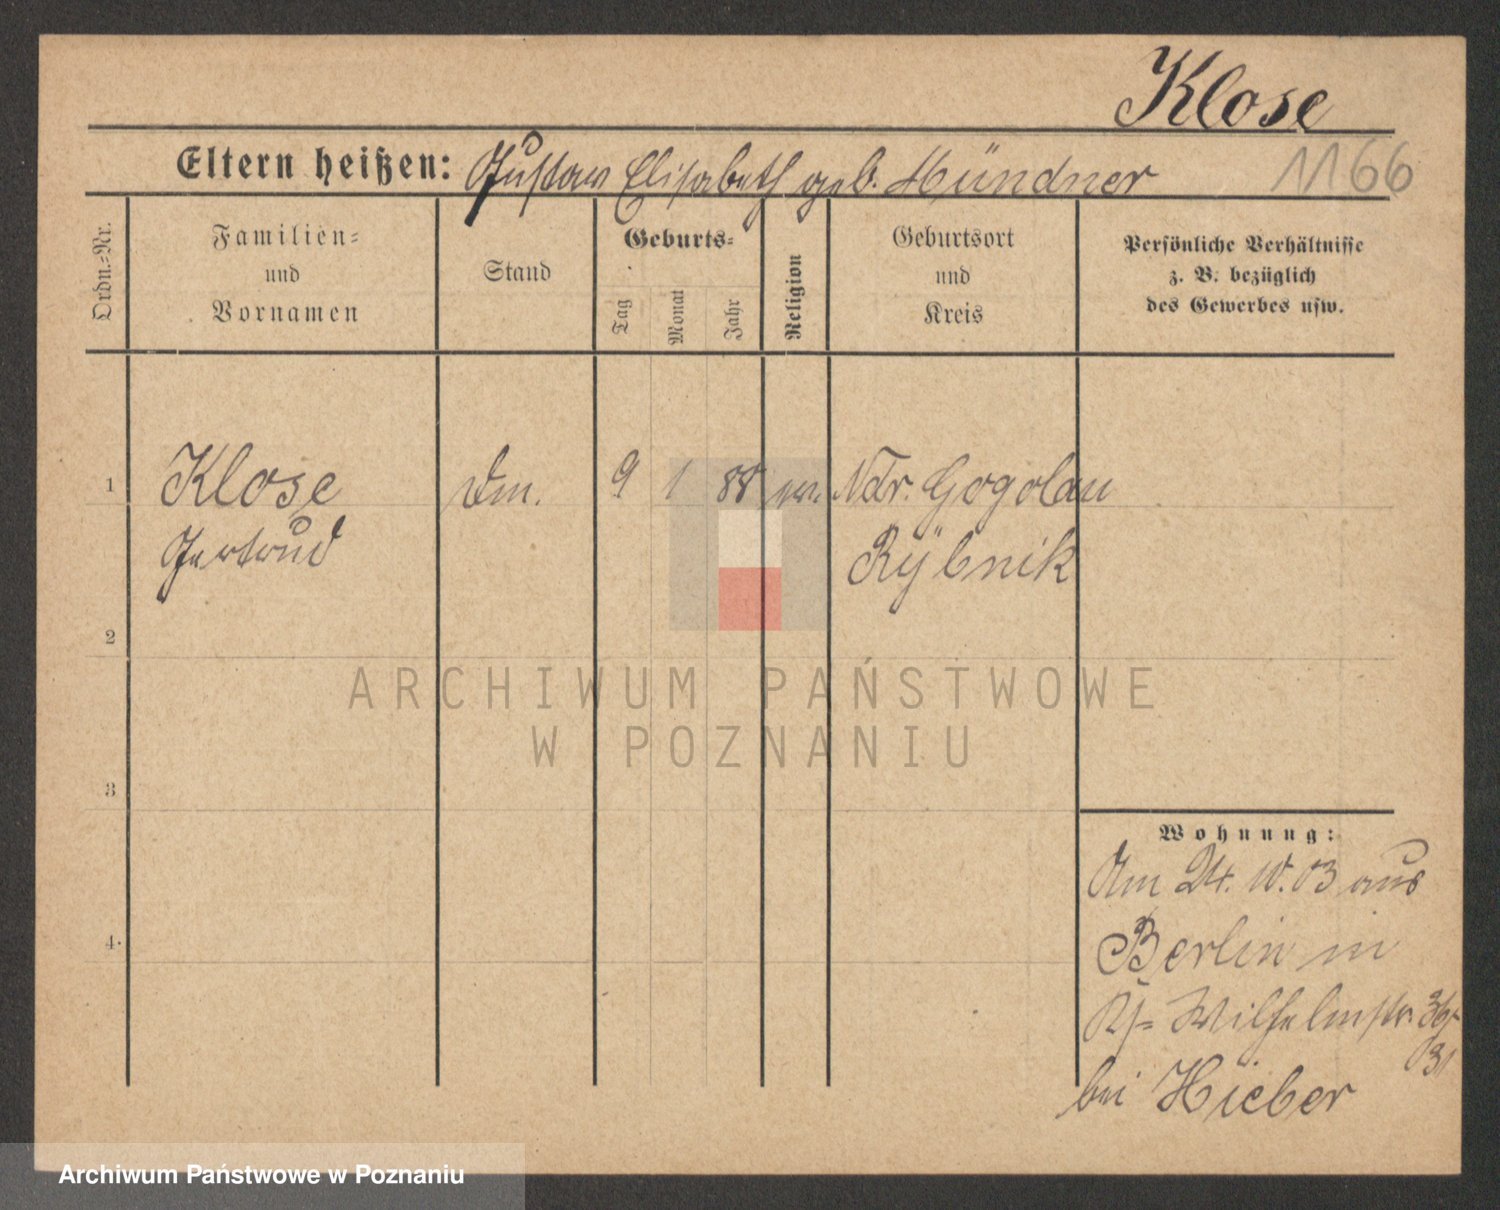 Klose
Eltern heißen: Gustav Elisabeth geb. Mündner
1166
Ordn.-Nr.
Familien-
und
Vornamen
Stand
Geburts-
Tag
Monat
Jahr
Religion
Geburtsort
und
Kreis
Persönliche Verhältnisse
z. B. bezüglich
des Gewerbes usw.
1 Klose 9 1 88 Ndr. Gogolau
Gertrud Rÿbnik
2
3
4.
Wohnung:
Am 24. 10. 03 aus
Berlin in
Wilhelmstr.
bei Hieber
ARCHIWUM PAŃSTWOWE
W POZNANIU
Archiwum Państwowe w Poznaniu